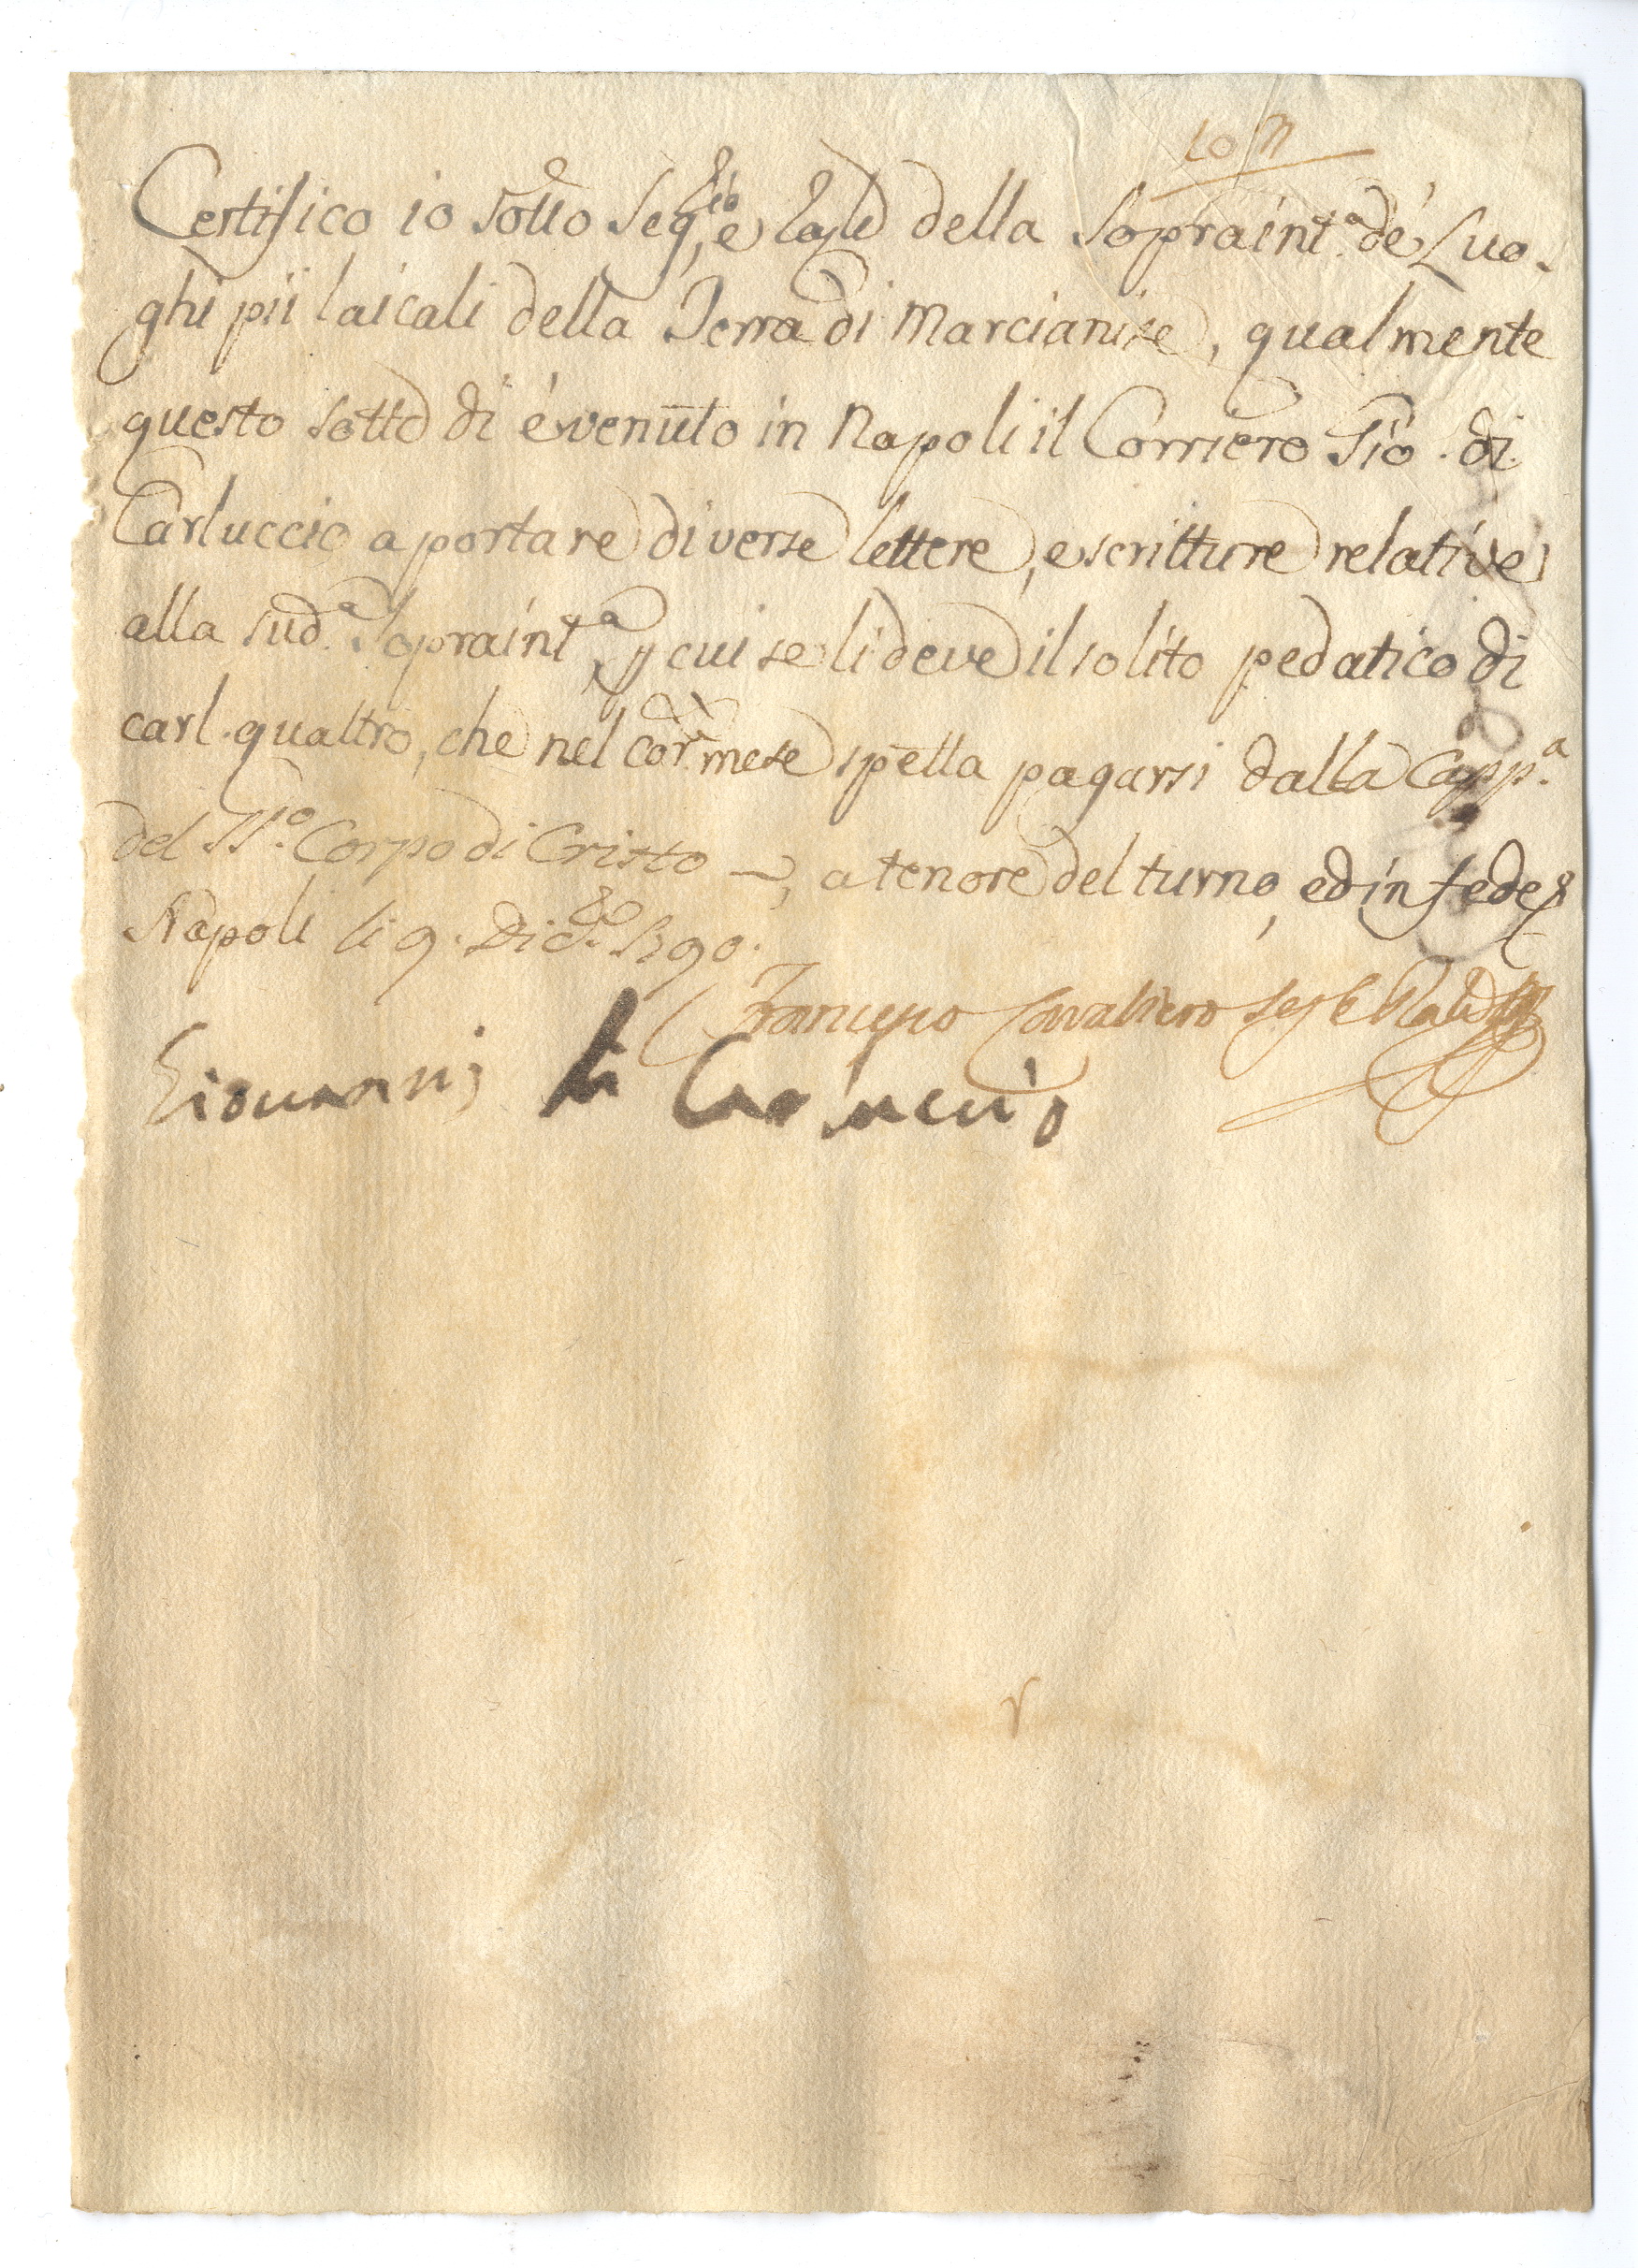 Certifico io sotto Seg.rio e della Sopraint.a de' Luo-
ghi pii laicali della Terra di Marcianise, qualmente
questo sotto dì è venuto in Napoli il Corriero Gio. di
Carluccio a portare diverse lettere, e scritture relative
alla sud.a Sopraint.a, p cui se li deve il solito pedatico di
carl. quattro, che nel cor.e mese spetta pagarsi dalla Capp.a
del SS.o Corpo di Cristo —, a tenore del turno, ed in fede &
Napoli li 9. Dic.e 1790.
Francesco Cavaliero Seg.
Giovanni di Carluccio